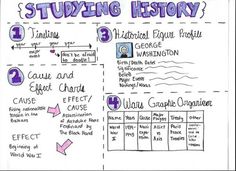 STUDYING HISTORY
1 Timelines
year year year year
event event event
Don't be afraid to doodle!
2 Cause and Effect Charts
CAUSE
Rising nationalistic tension in the Balkans
EFFECT/
CAUSE
Assassination of Archduke Franz Ferdinand by The Black Hand
EFFECT
Beginning of World War I
3 Historical Figure Profiles
GEORGE
WASHINGTON
Birth/Death Dates
Significance
Beliefs
Major Events
4 Wars Graphic Organizer
Name Year Cause Major Players Treaty Other
World War I 1914-1918 Allies Paris Peace